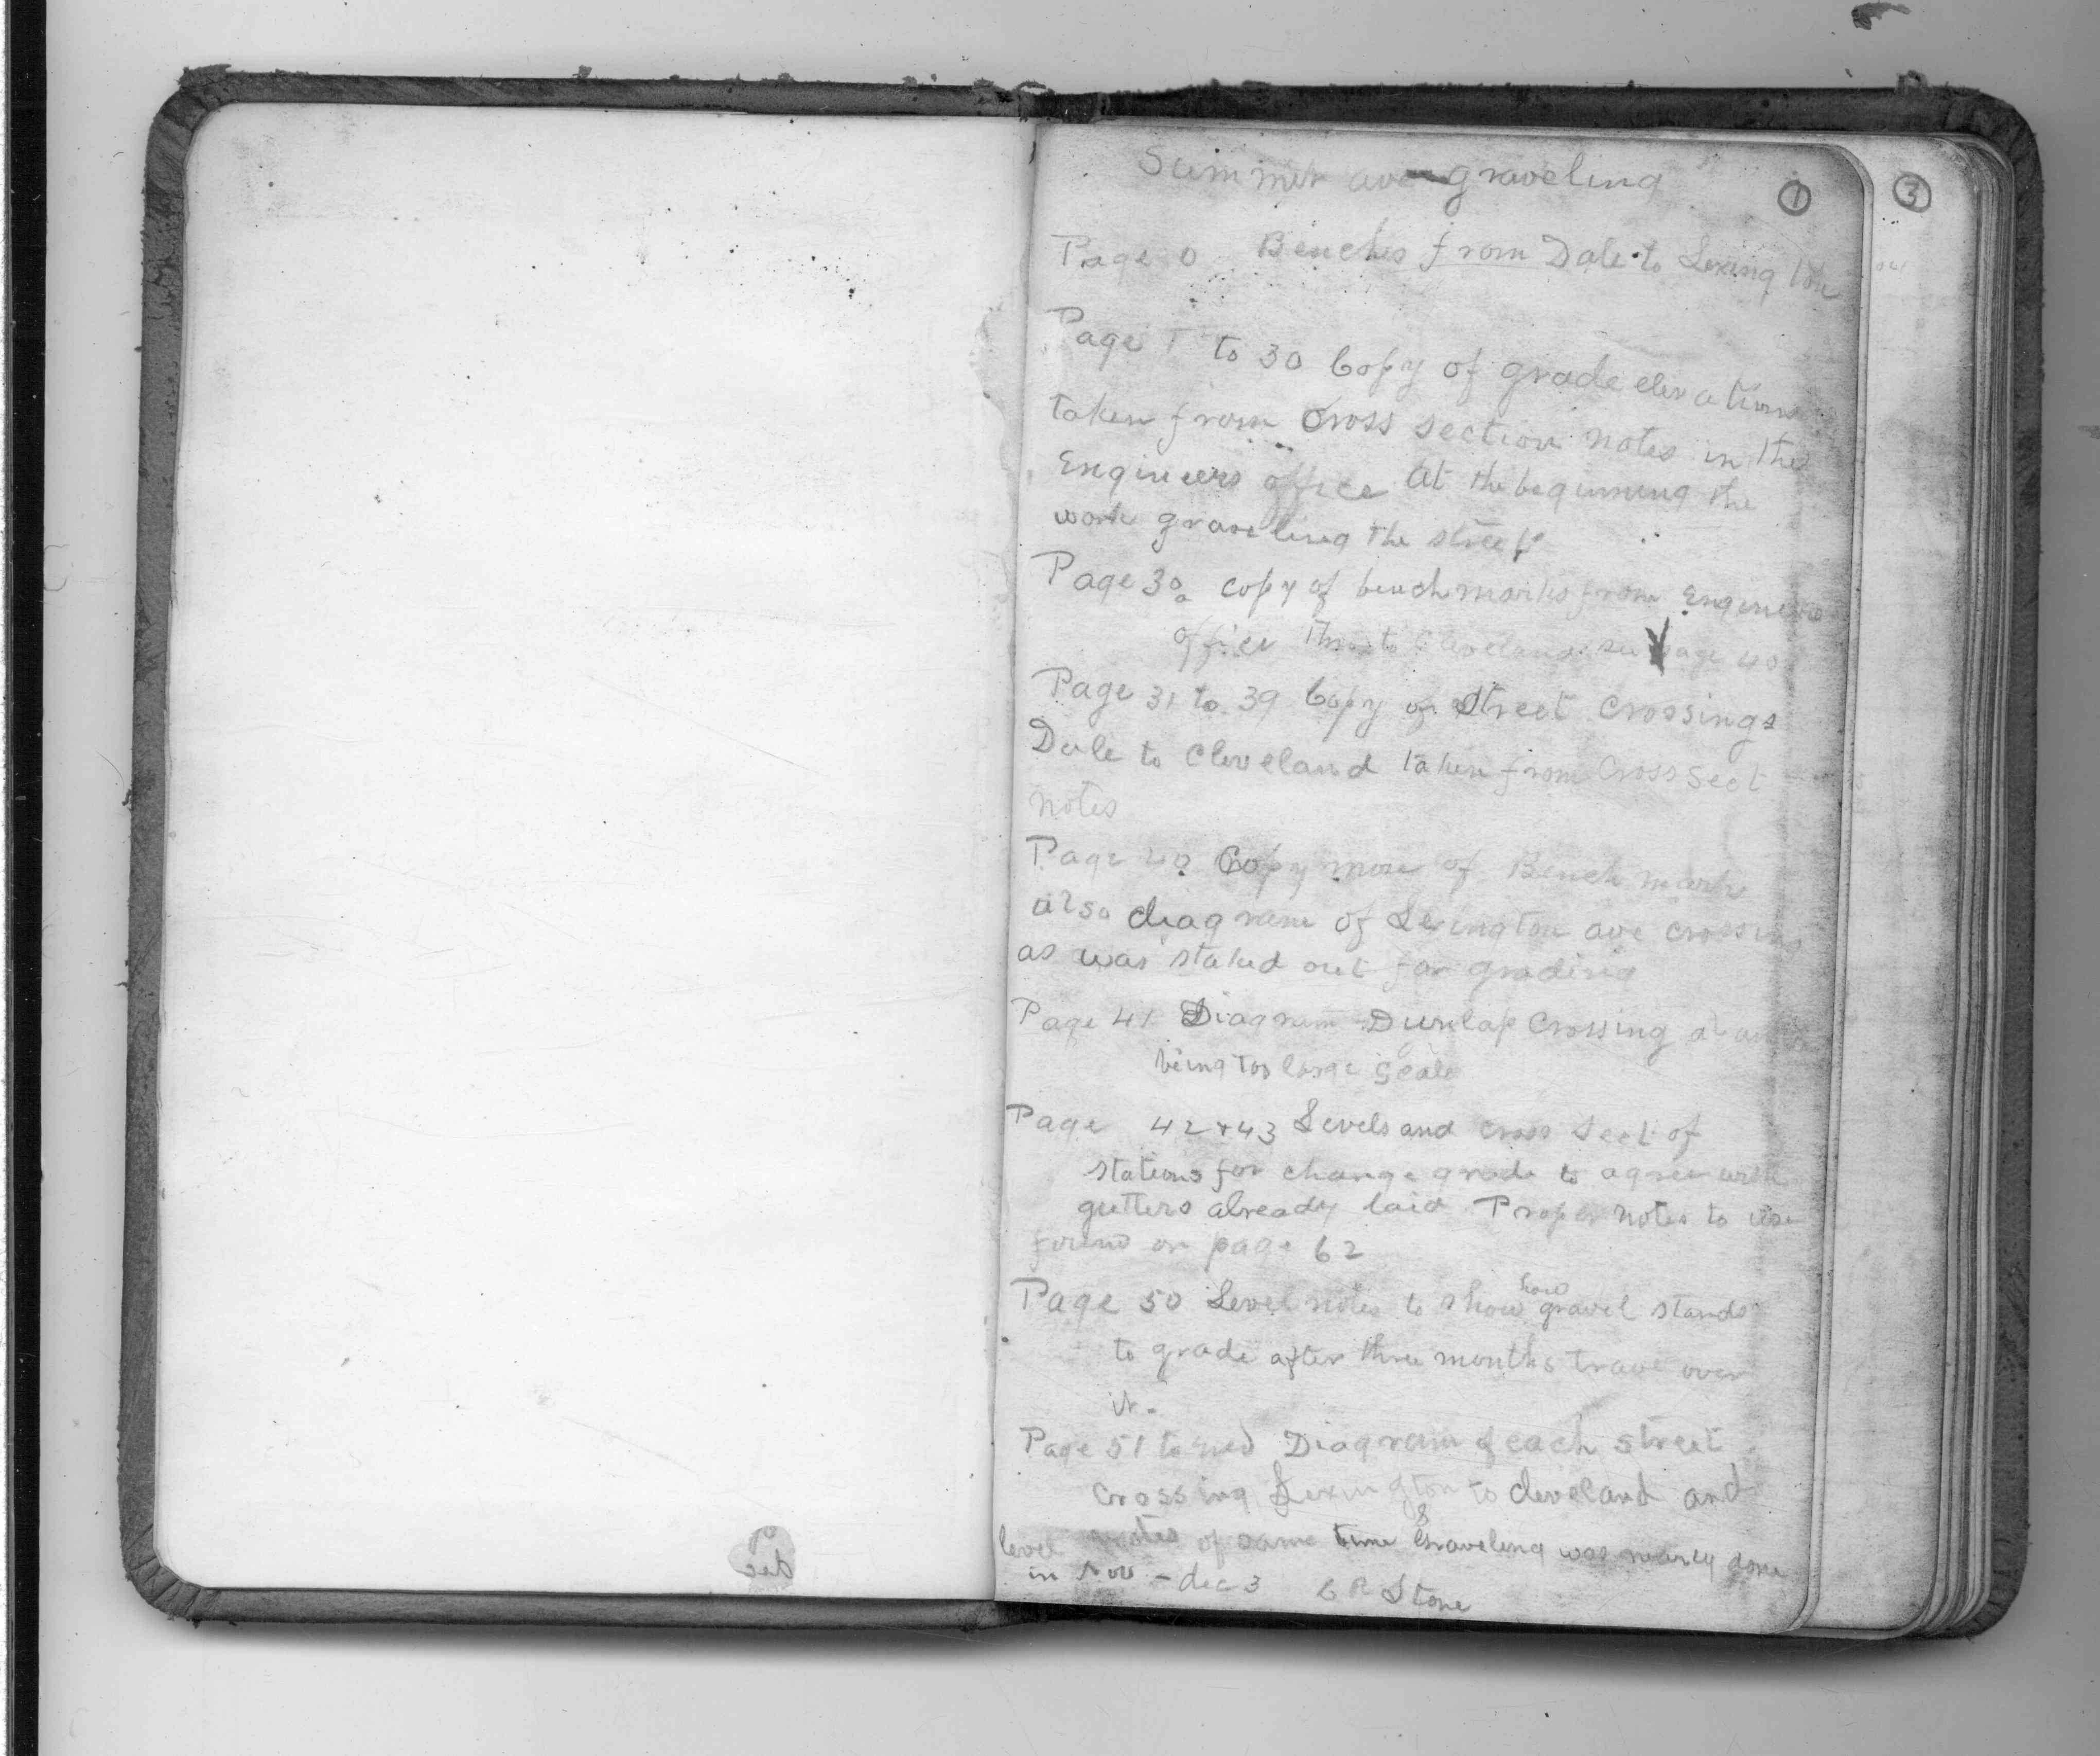 Summit ave graveling
1
3
Page 0 Benches from Dale to Lexington
Page 1 to 30 Copy of grade elevations
taken from Cross section notes in the
Engineers office at the beginning the
work graveling the street
Page 30a copy of bench marks from Engineers
office Thru to Cleveland. see page 40
Page 31 to 39 Copy of Street Crossings
Dale to Cleveland taken from Cross Sect
notes
Page 40 Copy more of Bench marks
also diagram of Lexington ave crossing
as was staked out for grading
Page 41 Diagram Dunlap Crossing
being too large scale
Page 42 + 43 Levels and cross sect of
stations for change grade to agree with
gutters already laid Proper notes to use
found on page 62
Page 50 Level notes to show how gravel stands
to grade after three months travel over
it.
Page 51 to end Diagram of each street
Crossing Lexington to Cleveland and
level notes of same time Graveling was nearly done
in Nov - dec 3 C R Stone